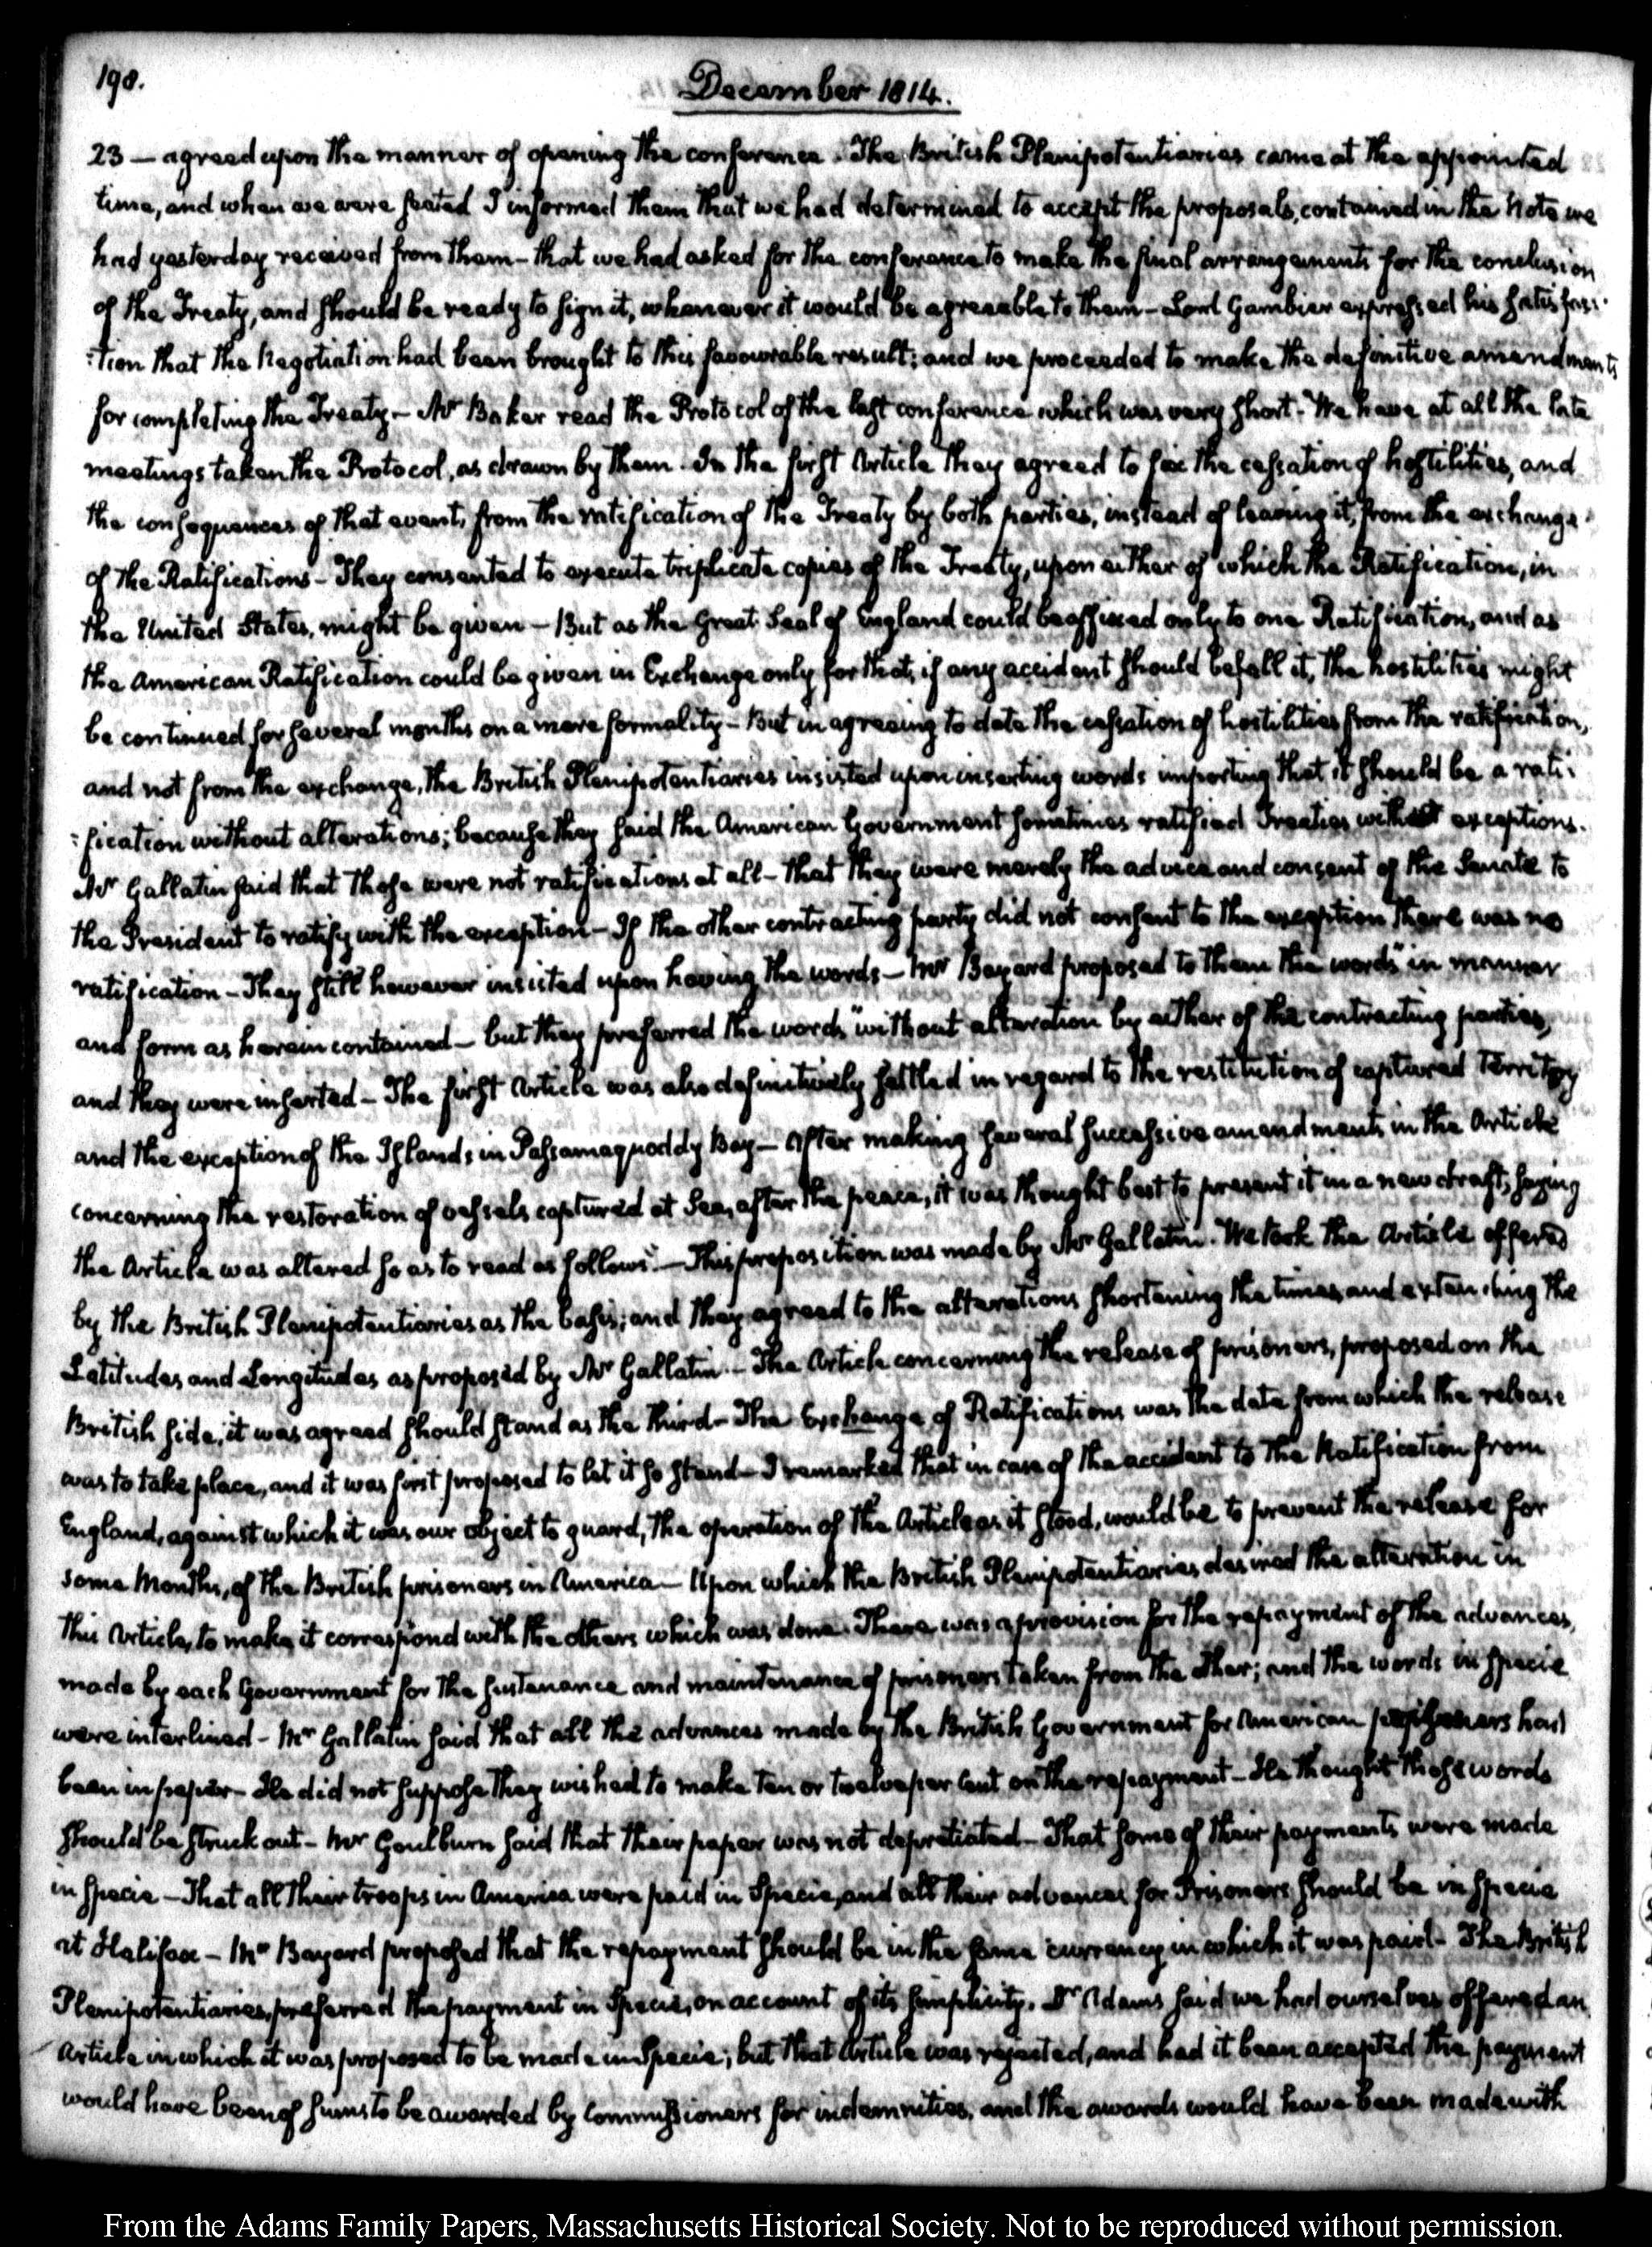 198.
December 1814.
23 — agreed upon the manner of opening the conference. The British Plenipotentiaries came at the appointed
time, and when we were seated I informed them that we had determined to accept the proposals, contained in the Note we
had yesterday received from them - that we had asked for the conference to make the final arrangements for the conclusion
of the Treaty, and should be ready to sign it, whenever it would be agreeable to them - Lord Gambier expressed his satisfac:
:tion that the Negotiation had been brought to this favourable result; and we proceeded to make the definitive amendments
for completing the Treaty - Mr Baker read the Protocol of the last conference which was very short - We have at all the late
meetings taken the Protocol, as drawn by them. In the first Article they agreed to fix the cessation of hostilities, and
the consequences of that event, from the ratification of the Treaty by both parties, instead of leaving it, from the exchange
of the Ratifications - They consented to execute triplicate copies of the Treaty, upon either of which the Ratification, in
the United States, might be given - But as the Great Seal of England could be affixed only to one Ratification, and as
the American Ratification could be given in Exchange only for that, if any accident should befall it, the hostilities might
be continued for several months on a mere formality - But in agreeing to date the cessation of hostilities from the ratification,
and not from the exchange, the British Plenipotentiaries insisted upon inserting words importing that it should be a rati:
:fication without alterations; because they said the American Government sometimes ratified Treaties with exceptions.
Mr Gallatin said that those were not ratifications at all - that they were merely the advice and consent of the Senate to
the President to ratify with the exception - If the other contracting party did not consent to the exception there was no
ratification - They still however insisted upon having the words - Mr Bayard proposed to them the words "in manner
and form as herein contained - but they preferred the words "without alteration by either of the contracting parties,
and they were inserted - The first Article was also definitively settled in regard to the restitution of captured Territory
and the exception of the Islands in Passamaquoddy Bay - After making several successive amendments in the Article
concerning the restoration of vessels captured at Sea, after the peace, it was thought best to present it in a new draft, saying
the Article was altered so as to read as follows. - This proposition was made by Mr Gallatin. We took the Article offered
by the British Plenipotentiaries as the basis; and they agreed to the alterations shortening the times, and extending the
Latitudes and Longitudes as proposed by Mr Gallatin - The Article concerning the release of prisoners, proposed on the
British side, it was agreed should stand as the third - The Exchange of Ratifications was the date from which the release
was to take place, and it was first proposed to let it so stand - I remarked that in case of the accident to the Ratification from
England, against which it was our object to guard, the operation of the Article as it stood, would be to prevent the release for
some Months, of the British prisoners in America - Upon which the British Plenipotentiaries desired the alteration in
this Article, to make it correspond with the others which was done. There was a provision for the repayment of the advances,
made by each Government for the sustenance and maintenance of prisoners taken from the other; and the words in specie
were interlined - Mr Gallatin said that all the advances made by the British Government for American prisoners had
been in paper - He did not suppose they wished to make ten or twelve per Cent on the repayment - He thought those words
should be struck out - Mr Goulburn said that their paper was not depretiated - That some of their payments were made
in specie - That all their troops in America were paid in Specie, and all their advances for Prisoners should be in specie
at Halifax - Mr Bayard proposed that the repayment should be in the same currency in which it was paid - The British
Plenipotentiaries, preferred the payment in Specie, on account of its simplicity. Dr Adams said we had ourselves offered an
Article in which it was proposed to be made in Specie; but that Article was rejected, and had it been accepted the payment
would have been of sums to be awarded by Commissioners for indemnities, and the awards would have been made with
From the Adams Family Papers, Massachusetts Historical Society. Not to be reproduced without permission.